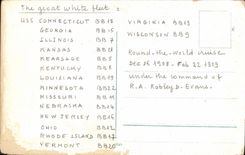 The great white fleet :
USS CONNECTICUT BB18
GEORGIA BB15
ILLINOIS BB7
KANSAS BB21
KEARSAGE BB5
KENTUCKY BB6
LOUISIANA BB19
MINNESOTA BB22
MISSOURI BB11
NEBRASKA BB14
NEW JERSEY BB16
OHIO BB12
RHODE ISLAND BB17
VERMONT BB20
VIRGINIA BB13
WISCONSIN BB9
Round-the-world cruise
Dec 16 1908 - Feb 22 1909
under the command of
R.A. Robley D. Evans.